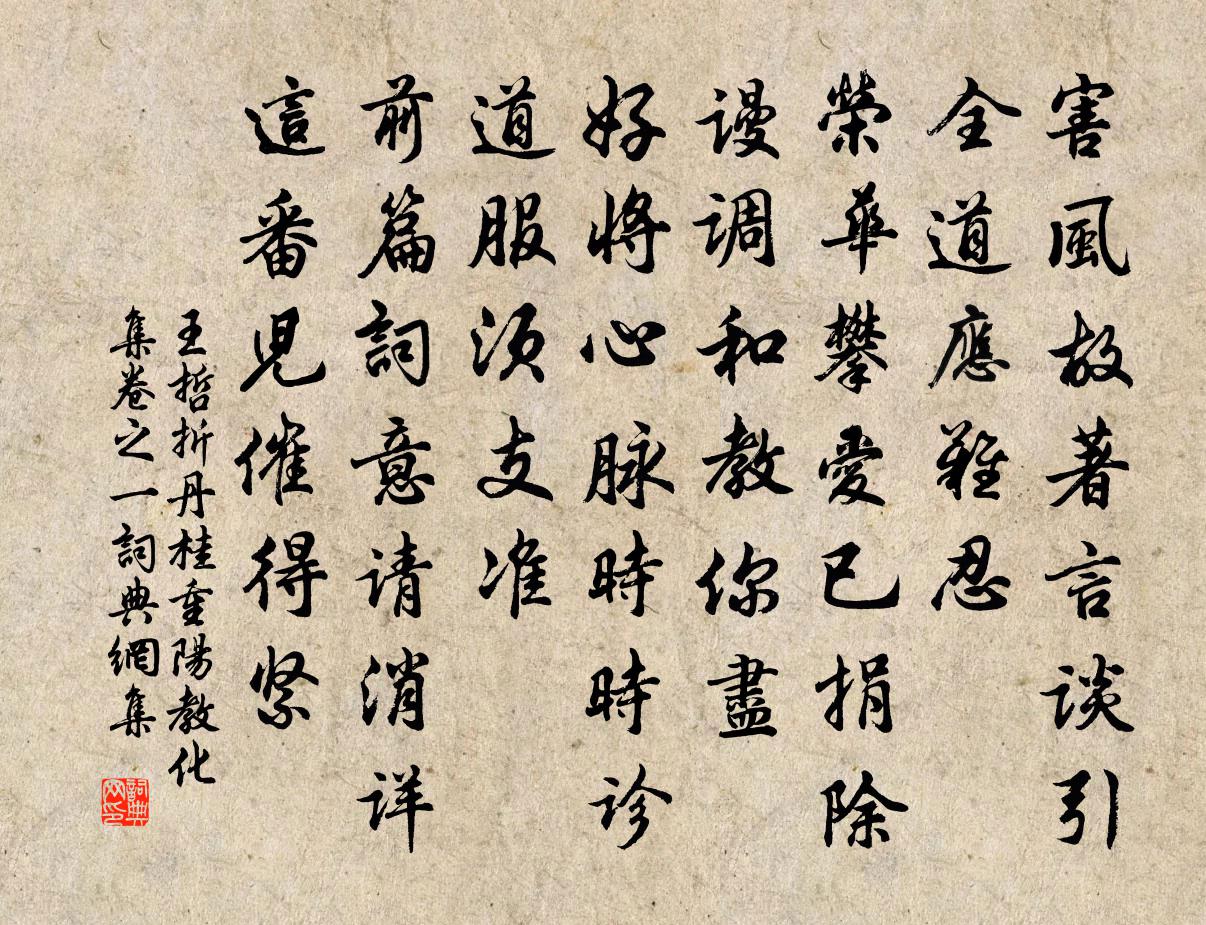 害風故著言談引
全道應難忍
榮華攀愛已捐除
謾调和教你盡
好將心脉時時診
道服須支准
前篇詞意请消详
這番児催得緊
王哲折丹桂重陽教化
集卷之一詞典網集
詞典網印